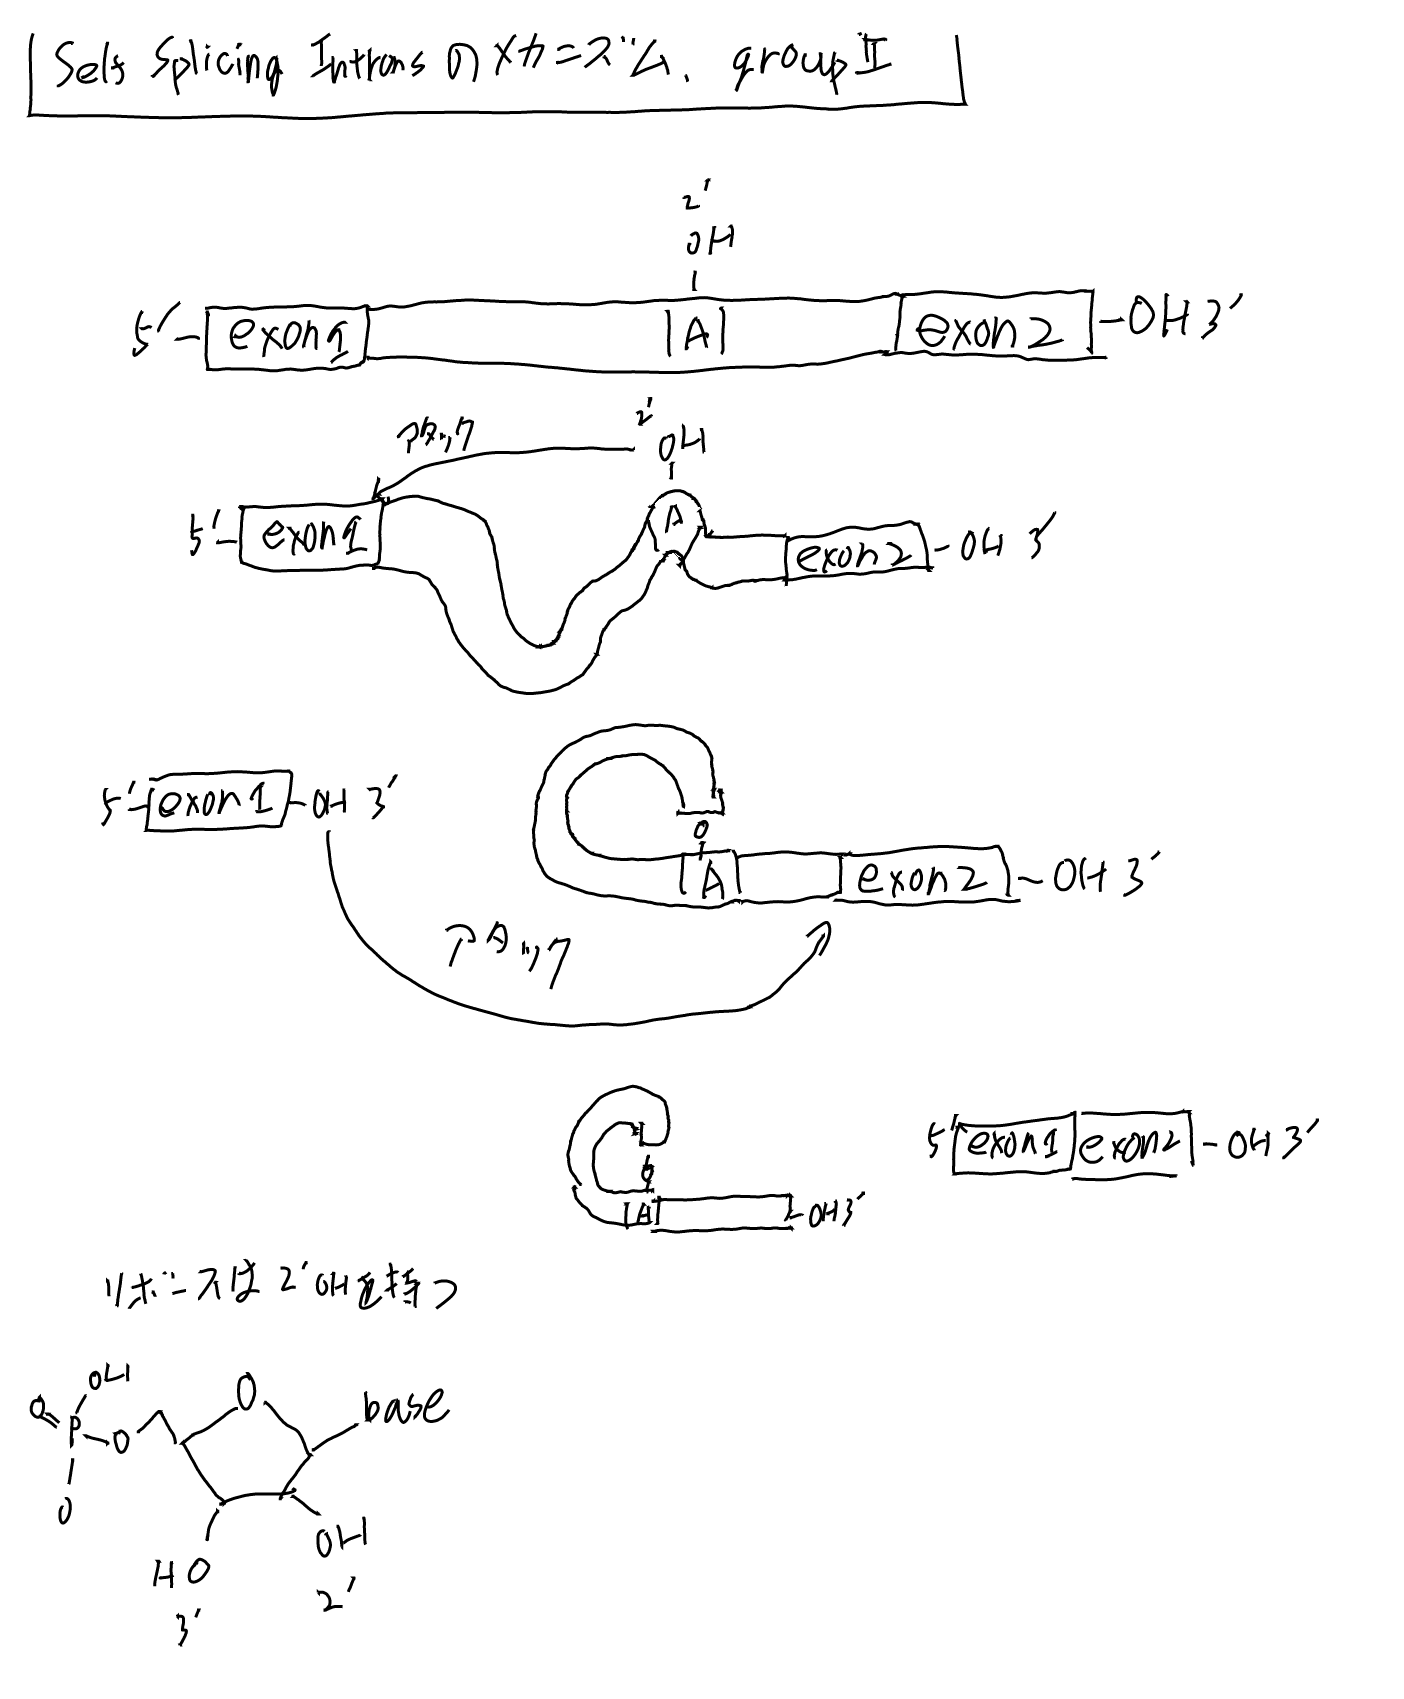 Self Splicing Intronsのメカニズム、groupⅡ
2'
OH
5'- exon1 |A| exon2 -OH 3'
アタック 2'
OH
5'- exon1 A exon2 -OH 3'
5'- exon1 -OH 3'
O
A exon2 -OH 3'
アタック
O
A -OH 3'
5' exon1 exon2 -OH 3'
リボースは2'OHを持つ
OH
O=P-O O base
O
HO OH
3' 2'